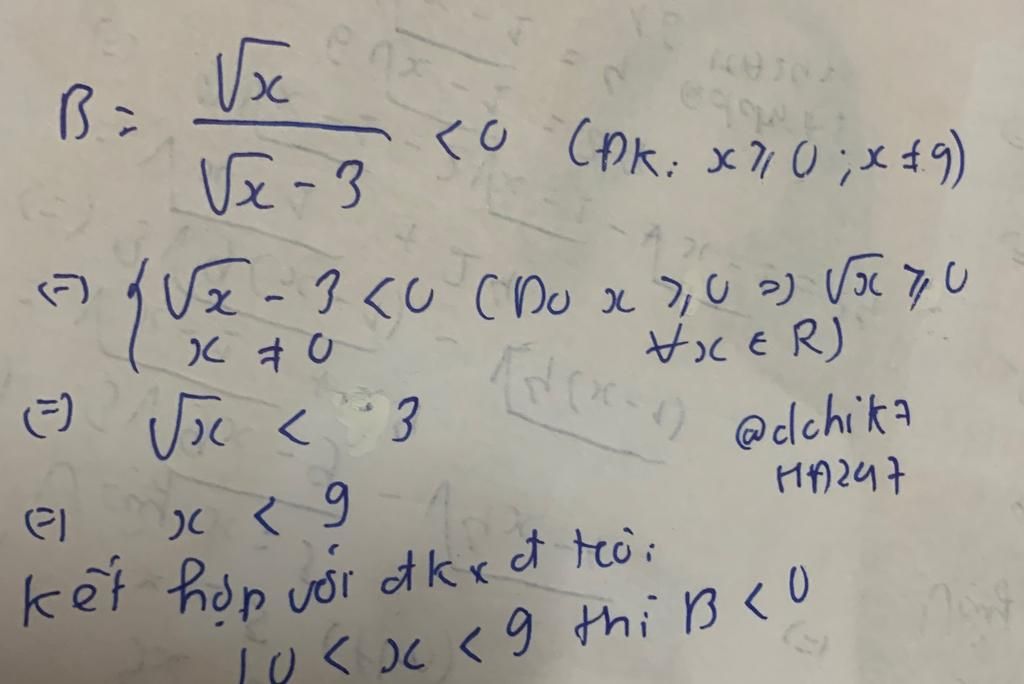 B = √x / (√x - 3) < 0 (ĐK: x ≥ 0 ; x ≠ 9)
(=) { √x - 3 < 0 (Do x ≥ 0 => √x ≥ 0
x ≠ 0 ∀x ∈ R)
(=) √x < 3
@dchik7
HĐ247
(=) x < 9
kết hợp với đkxđ
0 < x < 9 thì B < 0